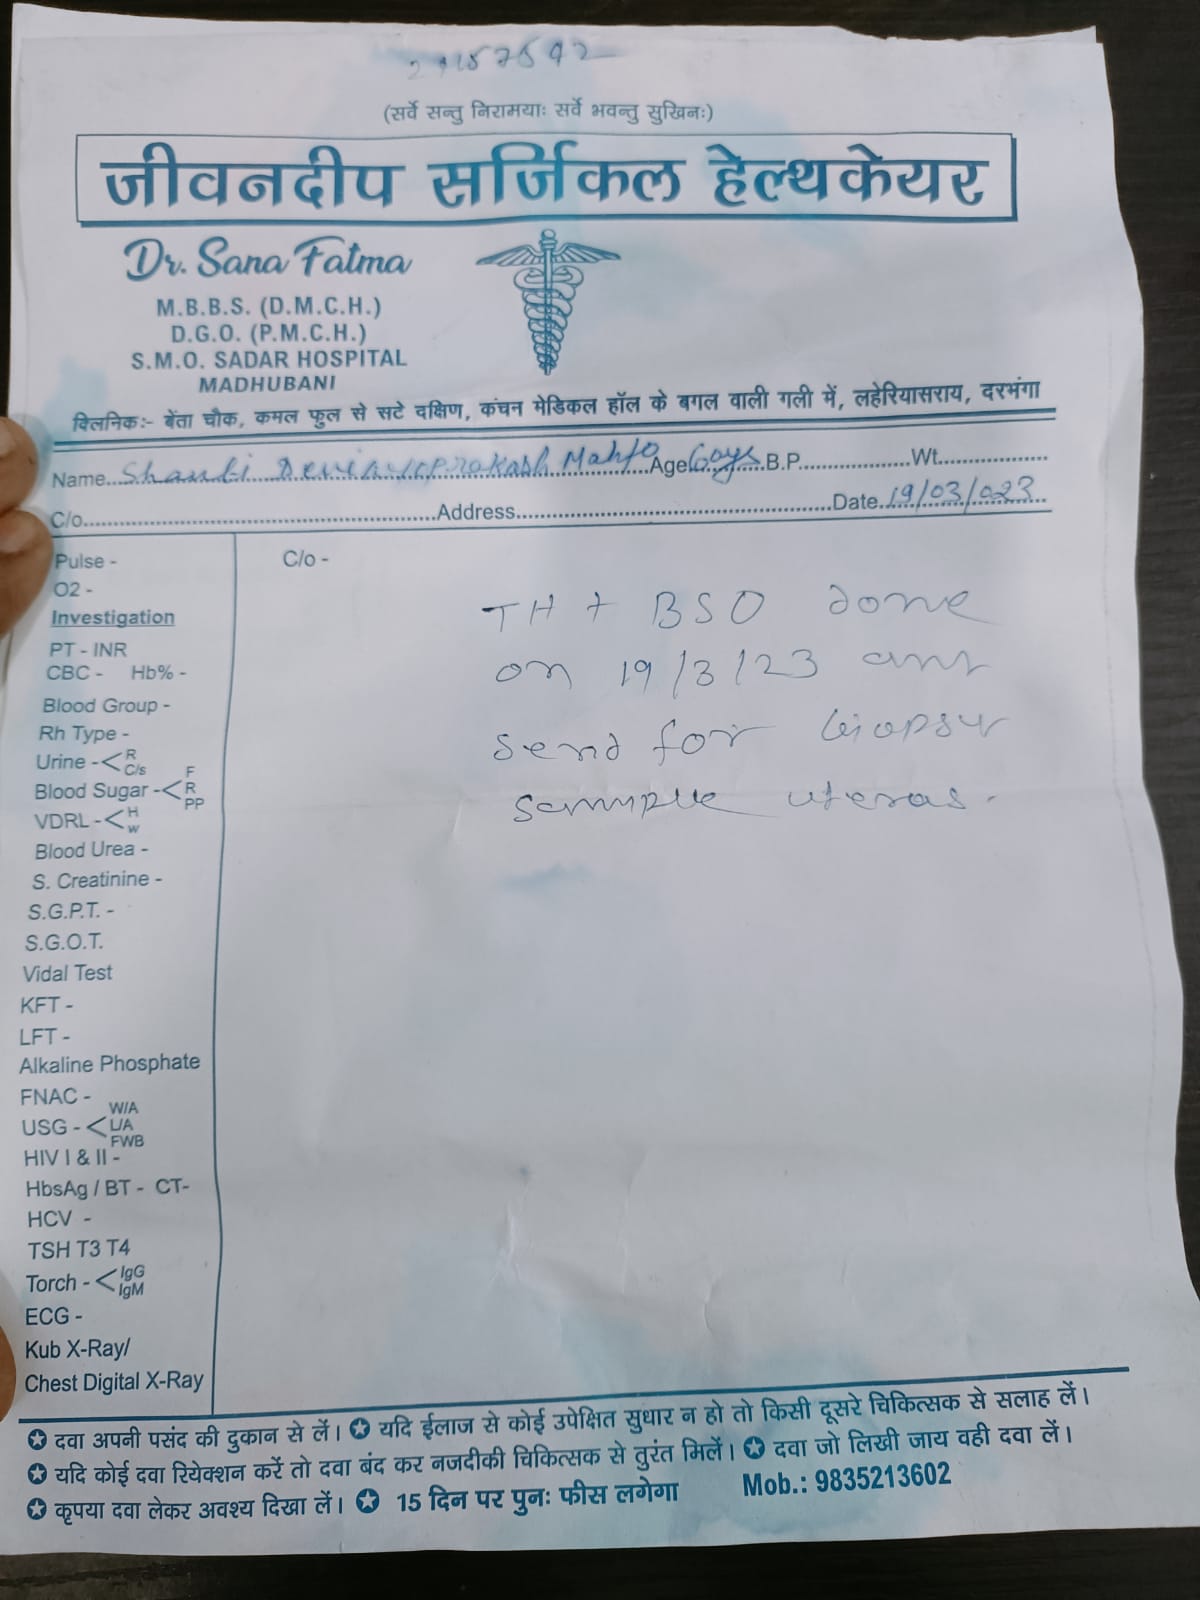 (सर्वे सन्तु निरामयाः सर्वे भवन्तु सुखिनः)
जीवनदीप सर्जिकल हेल्थकेयर
Dr. Sana Fatma
M.B.B.S. (D.M.C.H.)
D.G.O. (P.M.C.H.)
S.M.O. SADAR HOSPITAL
MADHUBANI
क्लिनिक:- बेंता चौक, कमल फुल से सटे दक्षिण, कंचन मेडिकल हॉल के बगल वाली गली में, लहेरियासराय, दरभंगा
Name...Shanti Devi Prakash Mahto Age 60ys B.P............Wt............
C/o............Address............Date 19/03/023
Pulse -
O2 -
Investigation
PT - INR
CBC - Hb% -
Blood Group -
Rh Type -
Urine -< R C/s
Blood Sugar -< F R PP
VDRL -< H W
Blood Urea -
S. Creatinine -
S.G.P.T. -
S.G.O.T.
Vidal Test
KFT -
LFT -
Alkaline Phosphate
FNAC -
USG -< W/A L/A FWB
HIV I & II -
HbsAg / BT - CT-
HCV -
TSH T3 T4
Torch -< IgG IgM
ECG -
Kub X-Ray/
Chest Digital X-Ray
C/o -
TH + BSO done
on 19/3/23 and
send for biopsy
sample uterus.
✪ दवा अपनी पसंद की दुकान से लें। ✪ यदि ईलाज से कोई उपेक्षित सुधार न हो तो किसी दूसरे चिकित्सक से सलाह लें।
✪ यदि कोई दवा रियेक्शन करें तो दवा बंद कर नजदीकी चिकित्सक से तुरंत मिलें। ✪ दवा जो लिखी जाय वही दवा लें।
✪ कृपया दवा लेकर अवश्य दिखा लें। ✪ 15 दिन पर पुनः फीस लगेगा Mob.: 9835213602